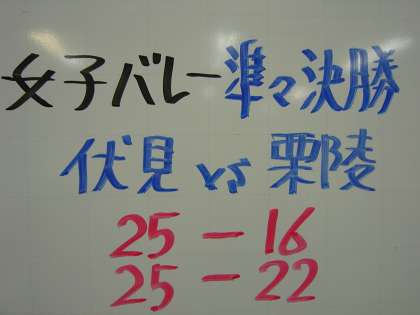 女子バレー準々決勝
伏見 vs 栗陵
25 - 16
25 - 22